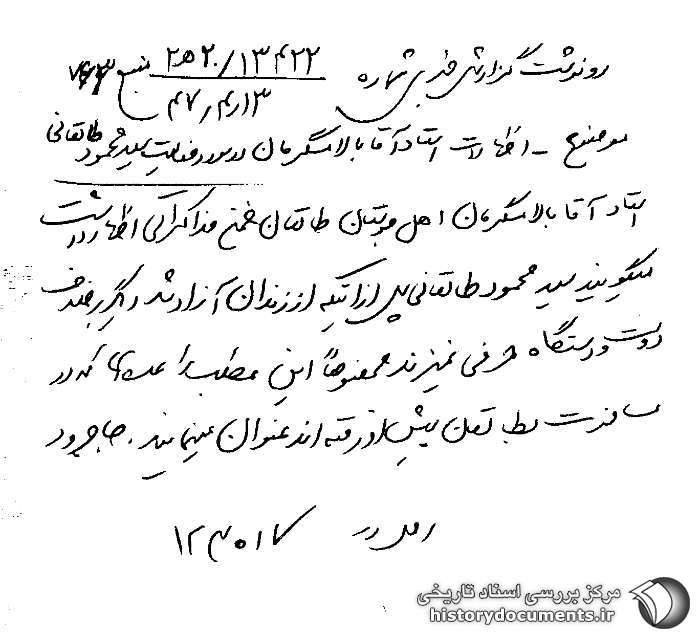 رونوشت گزارش خبر بی شماره ۱۳۴۲۲/ ۲۰ه۲ منبع
۴۷/۴/۱۳
موضوع - اظهارات استاد آقا بالا مسگریان در مورد فعالیت سید محمود طالقانی
استاد آقا بالا مسگریان اهل جوستان طالقان ضمن مذاکراتی اظهار داشت
میگویند سید محمود طالقانی پس از اینکه از زندان آزاد شد دیگر برخلاف
دولت و دستگاه حرفی نمیزند مخصوصاً این مطلب را عده‌ای که در
مسافرت بطالقان پیش او رفته اند عنوان مینمایند.
اصل در
مرکز بررسی اسناد تاریخی
historydocuments.ir